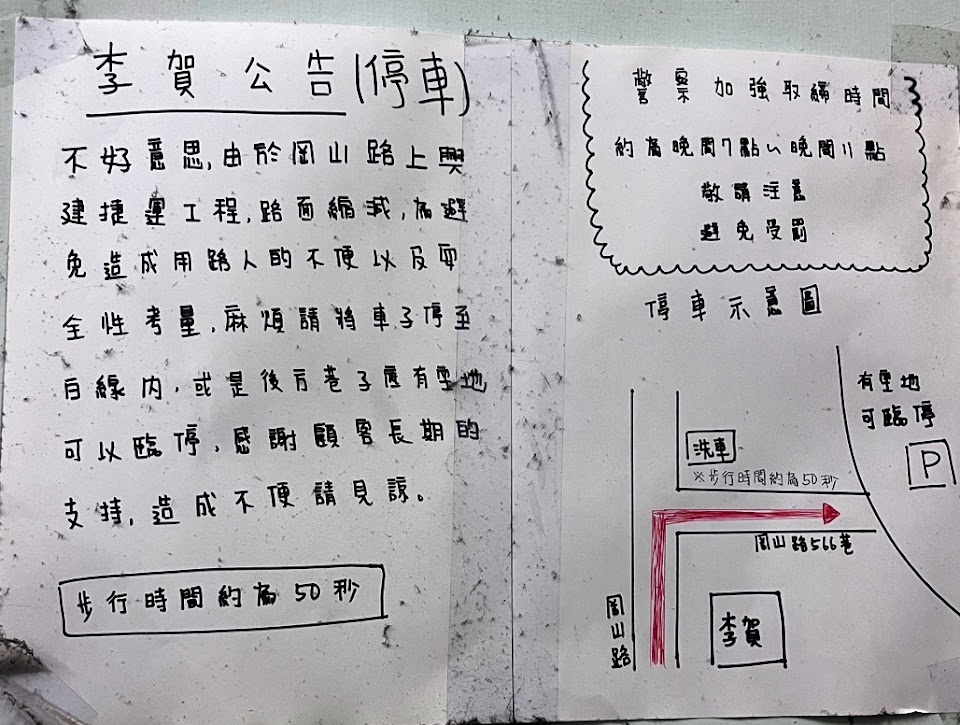 李賀公告(停車)
不好意思,由於岡山路上興
建捷運工程,路面縮減,為避
免造成用路人的不便以及安
全性考量,麻煩請將車子停至
白線內,或是後方巷子底有空地
可以臨停,感謝顧客長期的
支持,造成不便請見諒。
步行時間約為50秒
警察加強取締時間
約為晚間7點~晚間11點
敬請注意
避免受罰
停車示意圖
有空地
可臨停
P
洗車
※步行時間約為50秒
岡山路566巷
岡山路
李賀